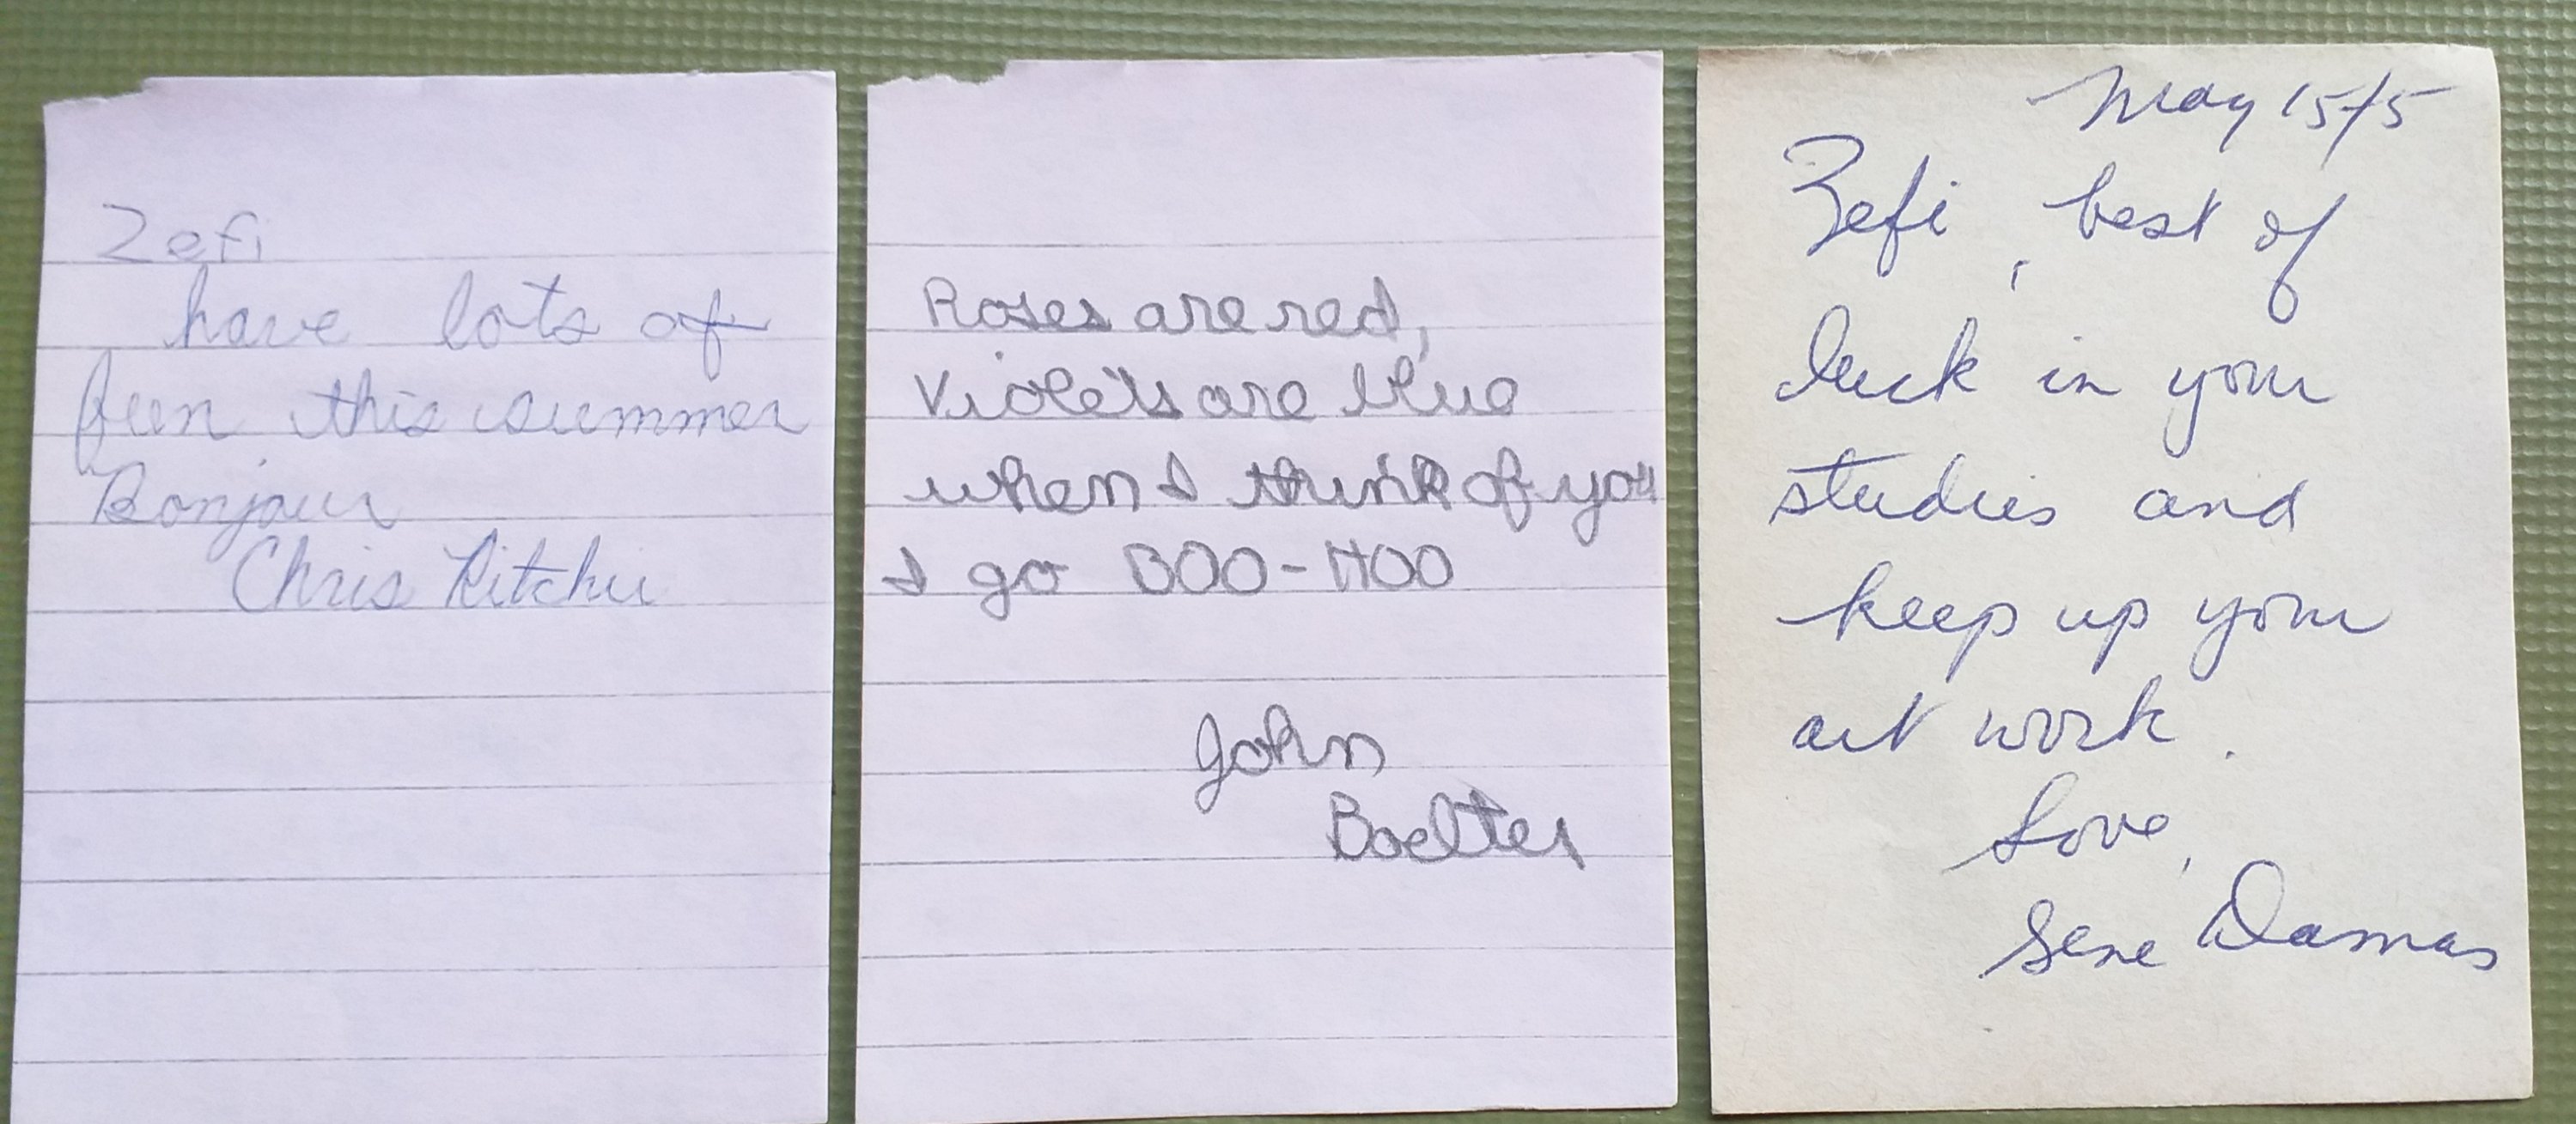 Zefi
have lots of
fun this summer
Bonjour
Chris Ritchie
Roses are red,
Violets are blue
when I think of you
I go BOO-HOO
John
Boelter
May 15/75
Zefi, best of
luck in your
studies and
keep up your
art work.
Love,
Gene Damas